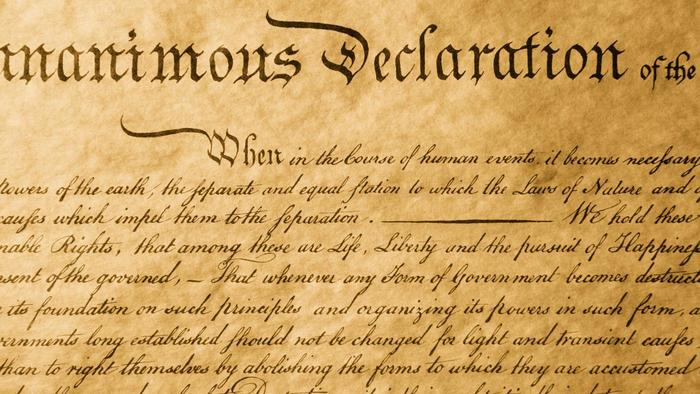 nanimous Declaration of the
When in the Course of human events, it becomes neceſsary
Powers of the earth, the ſeparate and equal ſtation to which the Laws of Nature and
cauſes which impel them to the ſeparation. ——— We hold these
nable Rights, that among these are Life, Liberty and the pursuit of Happineſ
sent of the governed, — That whenever any Form of Government becomes destructi
its foundation on such principles and organizing its powers in such form, a
vernments long established ſhould not be changed for light and transient cauſes
than to right themselves by abolishing the forms to which they are accustomed